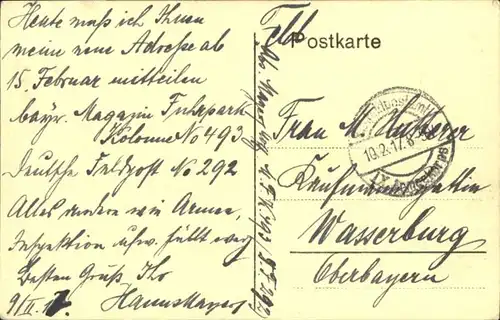 Heute muß ich Ihnen
meine neue Adresse ab
15. Februar mitteilen
bayr. Magazin Fuhrpark
Kolonne No 493
Deutsche Feldpost No 292
Alles andere wie Armee,
Inspektion usw. fällt weg
Besten Gruß Ihr
9/II. 17.
Feld
Postkarte
Frau M.
10.2.17. 8
Kaufmannsgattin
Wasserburg
Oberbayern